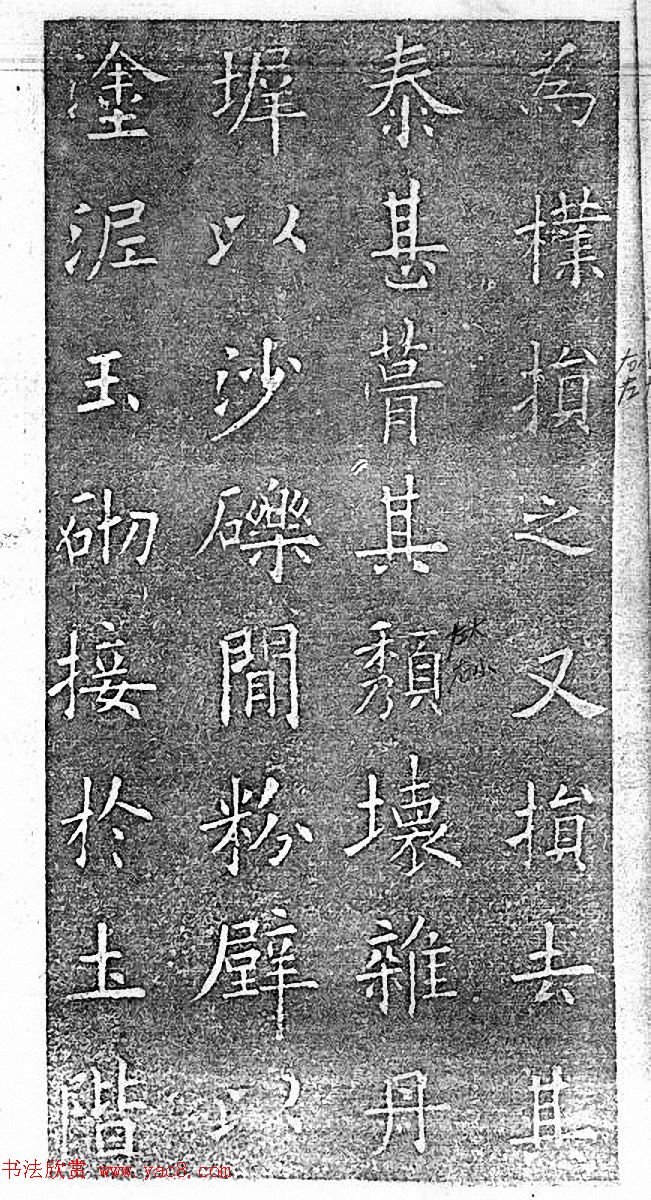 為樸損之又損去其
泰甚葺其頹壞雜丹
墀以沙礫閒粉壁以
塗泥玉砌接於土階
左大
右小
书法欣赏 www.yac8.com